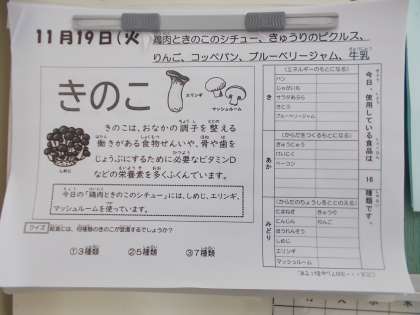 11月19日(火
鶏肉ときのこのシチュー、きゅうりのピクルス、
りんご、コッペパン、ブルーベリージャム、牛乳
きのこ
エリンギ
マッシュルーム
しめじ
きのこは、おなかの調子を整える
働きがある食物せんいや、骨や歯を
じょうぶにするために必要なビタミンD
などの栄養素を多くふくんでいます。
今日の「鶏肉ときのこのシチュー」には、しめじ、エリンギ、
マッシュルームを使っています。
クイズ
給食には、何種類のきのこが登場するでしょうか?
①3種類 ②5種類 ③7種類
今日、使用している食品は 16 種類です。
き
(エネルギーのもとになる)
パン
じゃがいも
サラダあぶら
さとう
ブルーベリージャム
あか
(からだをつくるもとになる)
ぎゅうにゅう
けいにく
ベーコン
みどり
(からだのちょうしをととのえる)
たまねぎ きゅうり
にんじん りんご
ほうれんそう
しめじ
エリンギ
マッシュルーム